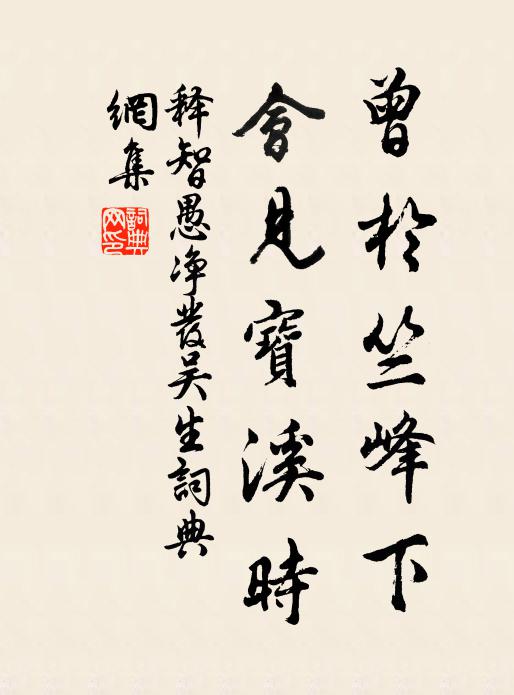 曾於竺峰下
會見寶溪時
释智愚净髮吴生詞典
網集
詞典
网印